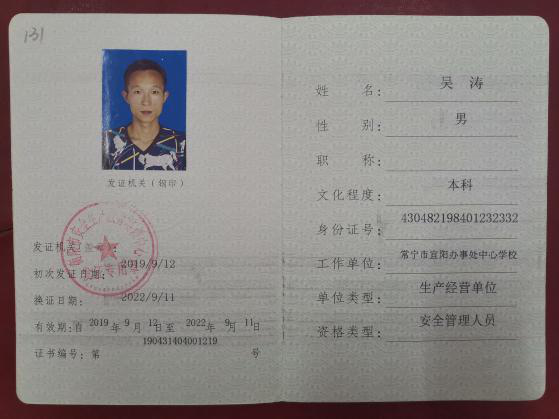 131
发证机关（钢印）
发证机关（盖章）：
初次发证日期：2019/9/12
换证日期：2022/9/11
有效期：自2019年9月12日至2022年9月11日
证书编号：第190431404001219号
姓名：吴涛
性别：男
职称：
文化程度：本科
身份证号：430482198401232332
工作单位：常宁市宜阳办事处中心学校
单位类型：生产经营单位
资格类型：安全管理人员